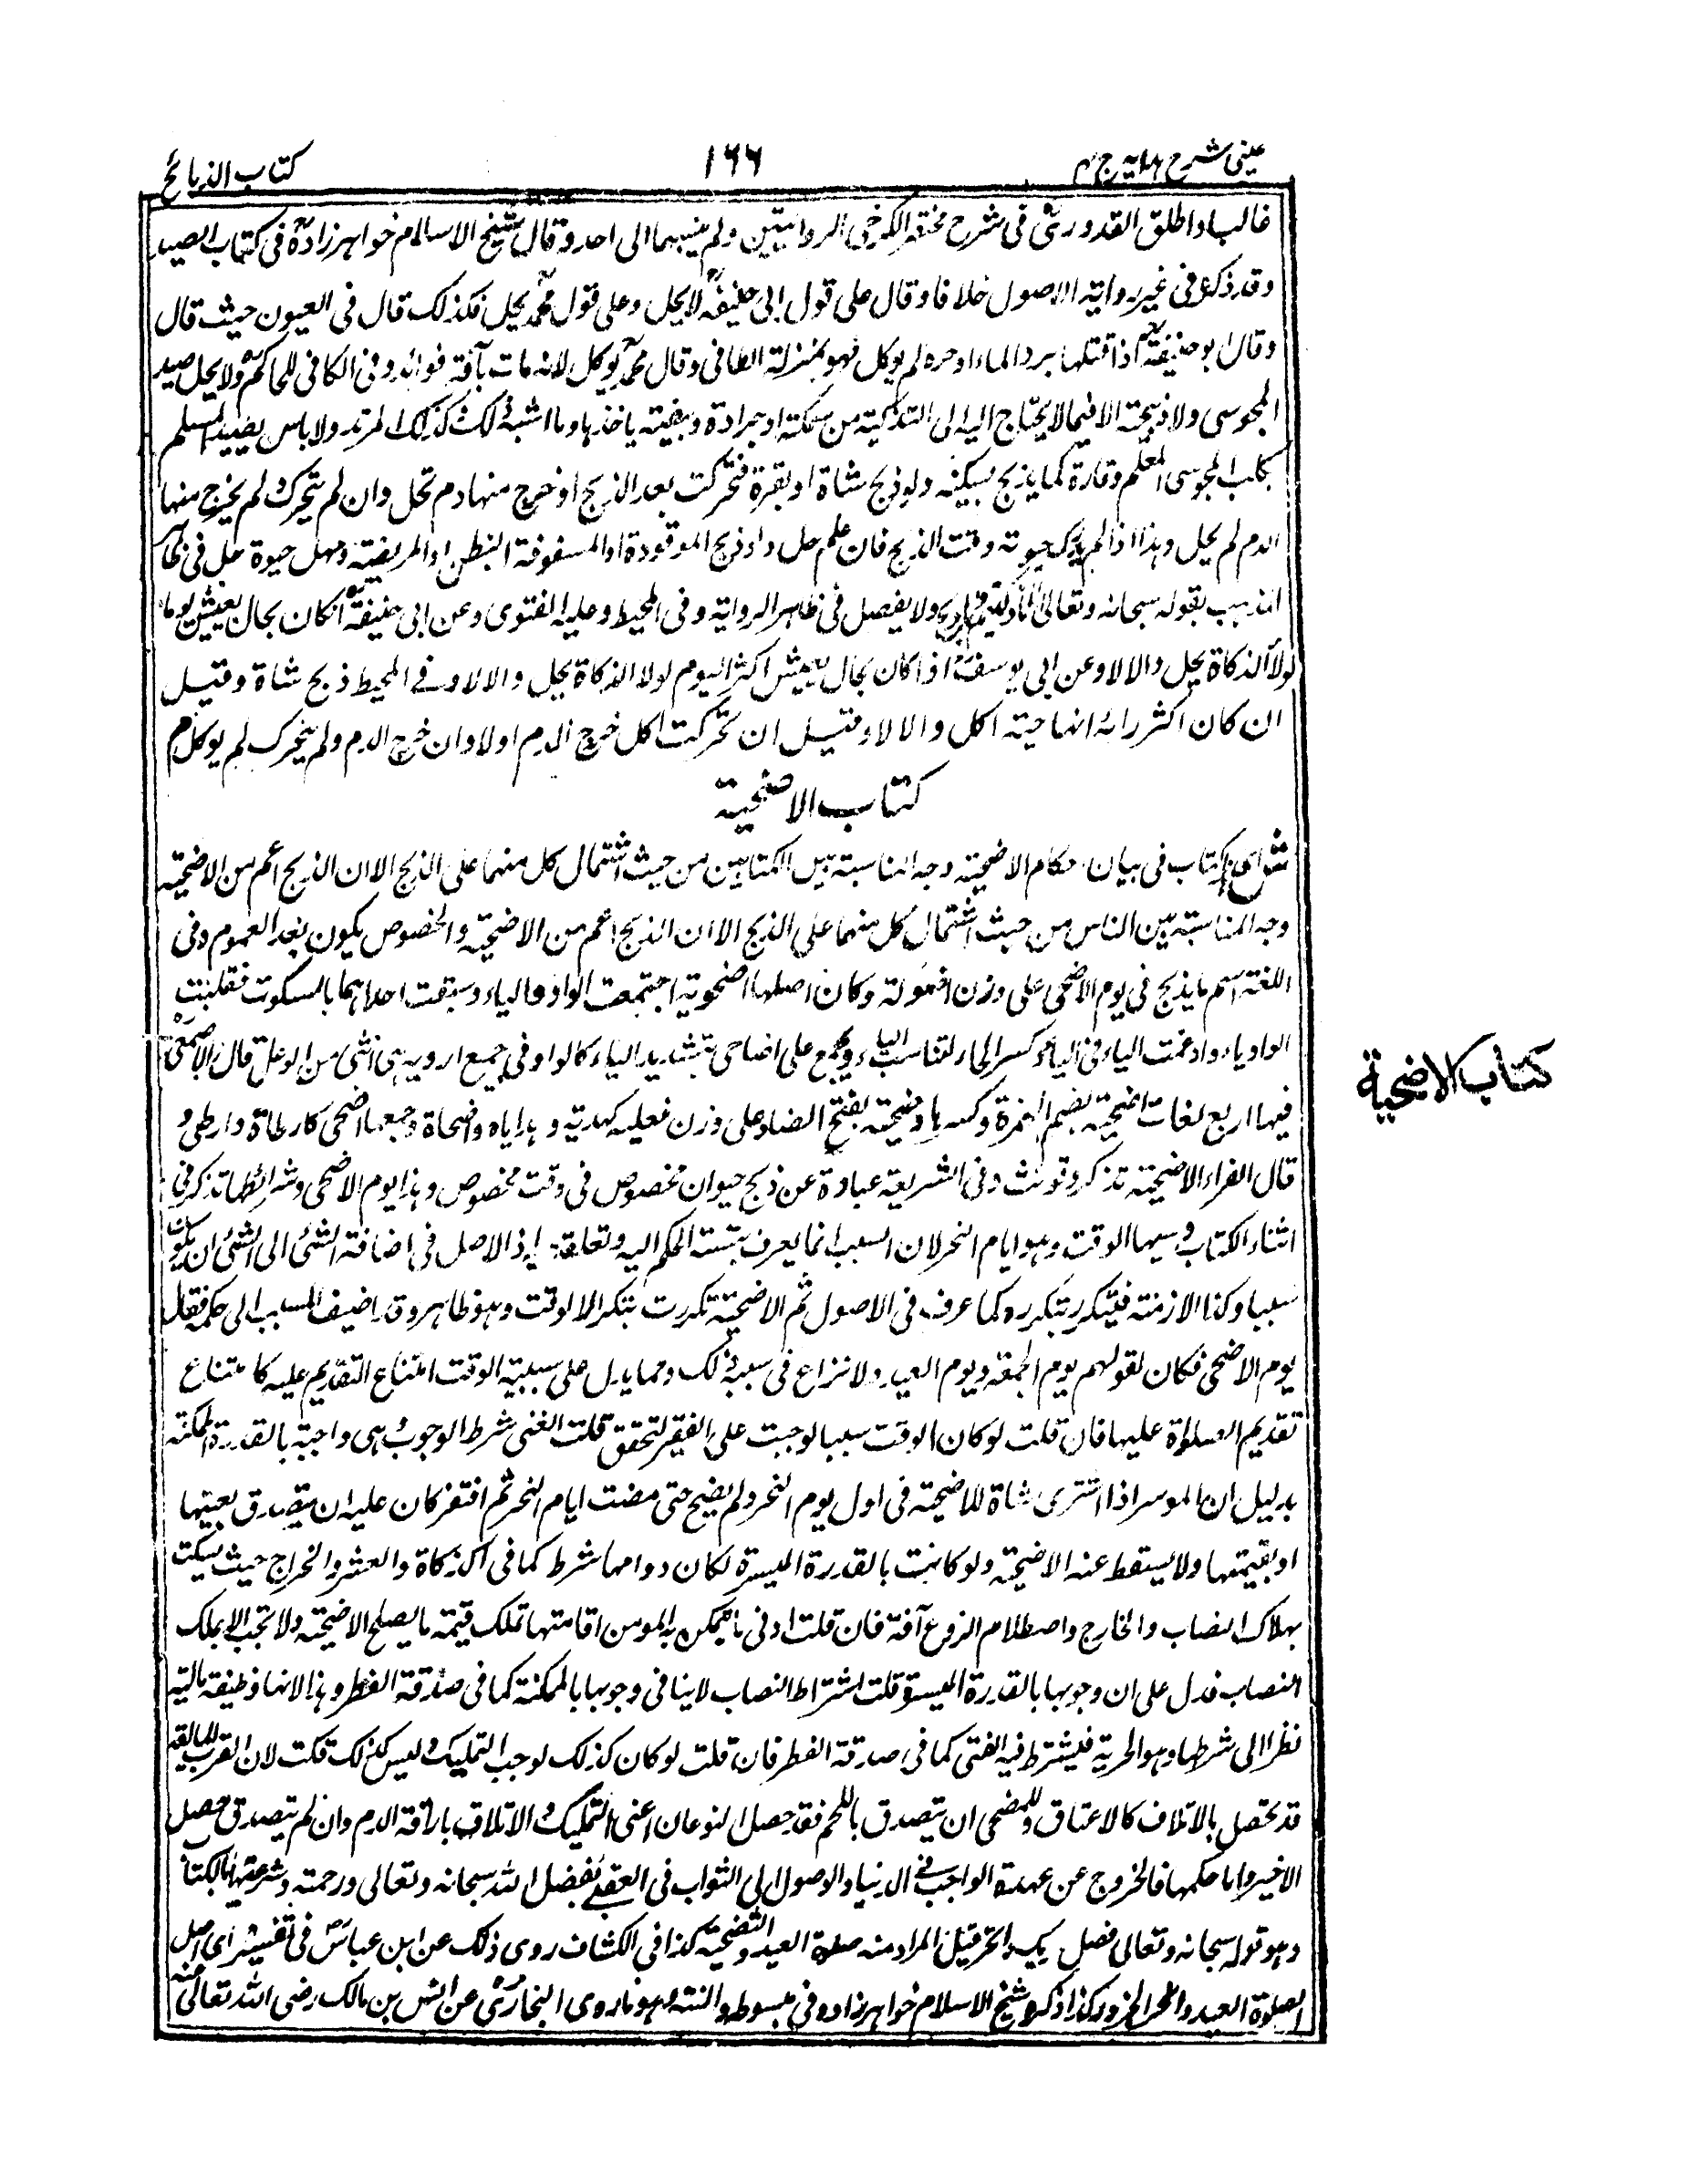 عینی شرح هدایه ج ۴
۱۶۶
کتاب الذبائح
غالبا واطلق القدوری فی شرح مختصر الکرخی الروایتین ولم ینسبهما الی احد وقال شیخ الاسلام خواهر زاده فی کتاب الصید
وقد ذکر فی غیر روایة الاصول خلافا وقال علی قول ابی حنیفة لا یحل وعلی قول محمد یحل فکذلک قال فی العیون حیث قال
وقال ابو حنیفة اذا قتلها برد الماء او حره لم یوکل فهو بمنزلة الطافی وقال محمد یوکل لانه مات بآفة وفی الکافی للحاکم ولا یحل صید
المجوسی ولا ذبیحته الا فیما لا یحتاج الیه الی التذکیة من سمکة او جرادة وبیضة یاخذها وما اشبه ذلک کذلک المرتد ولا باس بصید المسلم
بکلب المجوسی المعلم کما یذبح بسکینه ولو ذبح شاة او بقرة فتحرکت بعد الذبح او خرج منها دم تحل وان لم یتحرک ولم یخرج منها
الدم لم یحل وهذا اذا لم یدر حیوته وقت الذبح فان علم حل ولو ذبح الموقوذة او المریضة حیوة حل فی ظاهر
المذهب بقوله سبحانه وتعالی ولا یفصل فی ظاهر الروایة وفی المحیط وعلیه الفتوی وعن ابی حنیفة ان کان بحال یعیش یوما
لولا الذکاة یحل والا لا وعن ابی یوسف اذا کان بحال یعیش اکثر الیوم لولا الذکاة یحل والا لا وفی المحیط ذبح شاة وقیل
ان کان اکثر رایه انها حیة اکل والا لا وقیل ان تحرکت اکل خرج الدم اولا وان خرج الدم ولم یتحرک لم یوکل م
کتاب الاضحیة
ش ای هذا کتاب فی بیان احکام الاضحیة وجه المناسبة بین الکتابین من حیث اشتمال کل منهما علی الذبح الا ان الذبح اعم من الاضحیة
وجه المناسبة بین الناس من حیث اشتمال کل منهما علی الذبح الا ان الذبح اعم من الاضحیة والخصوص یکون بعد العموم وفی
اللغة اسم ما یذبح فی یوم الاضحی علی وزن افعولة وکان اصلها اضحویة اجتمعت الواو والیاء وسبقت احداهما بالسکون فقلبت
الواو یاء وادغمت الیاء فی الیاء وکسر الحاء لتناسب الیاء ویجمع علی اضاحی بتشدید الیاء کالواو فی جمیع ارویه هی انثی من الوعل قال الاصمعی
فیها اربع لغات اضحیة بضم الهمزة وکسرها وضحیة بفتح الضاد علی وزن فعلیة کهدیة وهدایاه واضحاة وجمعها اضحی کارطاة وارطی و
قال الفراء الاضحیة تذکر وتونث وفی الشریعة عبادة عن ذبح حیوان مخصوص فی وقت مخصوص وهذا یوم الاضحی وشرائطها تذکر فی
اثناء الکتاب وسببها الوقت وهو ایام النحر لان السبب انما یعرف بنسبة الحکم الیه وتعلقه اذ الاصل فی اضافة الشئ الی الشئ ان یکون
سببا وکذا الازمنة فیتکرر بتکرره کما عرف فی الاصول ثم الاضحیة تکررت بتکرر الوقت وهو ظاهر وقد اضیف السبب الی حکمه فقال
یوم الاضحی فکان لقولهم یوم الجمعة ویوم العید ولا نزاع فی سببیة ذلک ومما یدل علی سببیة الوقت امتناع التقدیم علیه کامتناع
تقدیم الصلوة علیها فان قلت لو کان الوقت سببا لوجبت علی الفقیر لتحقق قلت الغنی شرط الوجوب هی واجبة بالقدرة الممکنة
بدلیل ان الموسر اذا اشتری شاة للاضحیة فی اول یوم النحر ولم یضح حتی مضت ایام النحر ثم افتقر کان علیه ان یتصدق بعینها
او بقیمتها ولا یسقط عنه الاضحیة ولو کانت بالقدرة المیسرة لکان دوامها شرط کما فی الزکاة والعشر والخراج حیث یسکت
بهلاک النصاب والخارج واصطلام الزرع آفة فان قلت ادنی ما یتمکن به المومن اقامتها تملک قیمة ما یصلح الاضحیة ولا تجب الا بملک
النصاب فدل علی ان وجوبها بالقدرة المیسرة قلت اشتراط النصاب لا ینافی وجوبها بالممکنة کما فی صدقة الفطر وهذا لانها وظیفة مالیة
نظرا الی شرطها وهو الحریة فیشترط فیه الغنی کما فی صدقة الفطر فان قلت لو کان کذلک لوجب التملیک ولیس کذلک قلت لان القرب المالیة
قد تحصل بالاتلاف کالاعتاق وللمضحی ان یتصدق باللحم فقد حصل النوعان اعنی التملیک والاتلاف باراقة الدم وان لم یتصدق حصل
الاخیر واما حکمها فالخروج عن عهدة الواجب فی الدنیا والوصول الی الثواب فی العقبی بفضل الله سبحانه وتعالی ورحمته وشرعیتها بالکتاب
وهو قوله سبحانه وتعالی فصل لربک وانحر قیل المراد منه صلوة العید والتضحیة کذا فی الکشاف روی ذلک عن ابن عباس فی تفسیره ای صل
الصلوة العید وانحر الجزور کذا ذکره شیخ الاسلام خواهر زاده فی مبسوطه والسنة وهو ما روی البخاری عن انس بن مالک رضی الله تعالی عنه
کتاب الاضحیة